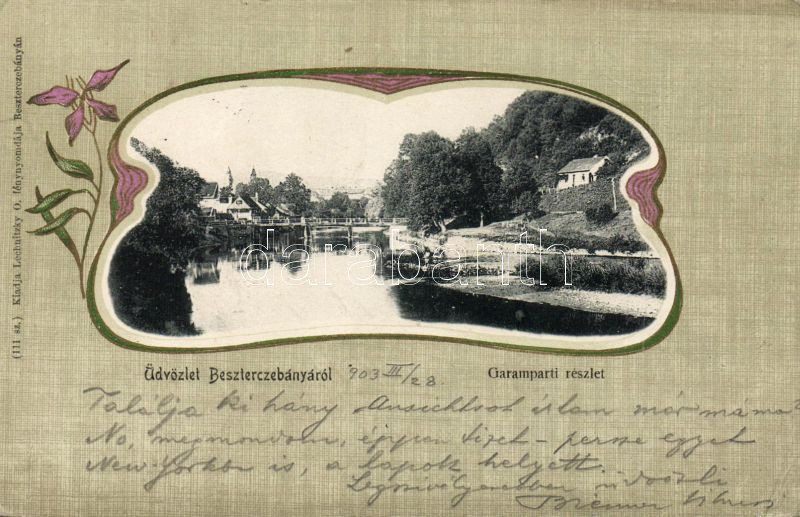 (111 sz.) Kiadja Lechnitzky O. fénynyomdája Beszterczebányán
darabanth
Üdvözlet Beszterczebányáról 903 III/28.
Garamparti részlet
Találja ki hány Ansichtsot irtam már máma?
No, megmondom, éppen tizet – persze egyet
New-Yorkba is, a lapok helyett.
Legszivélyesebben üdvözli